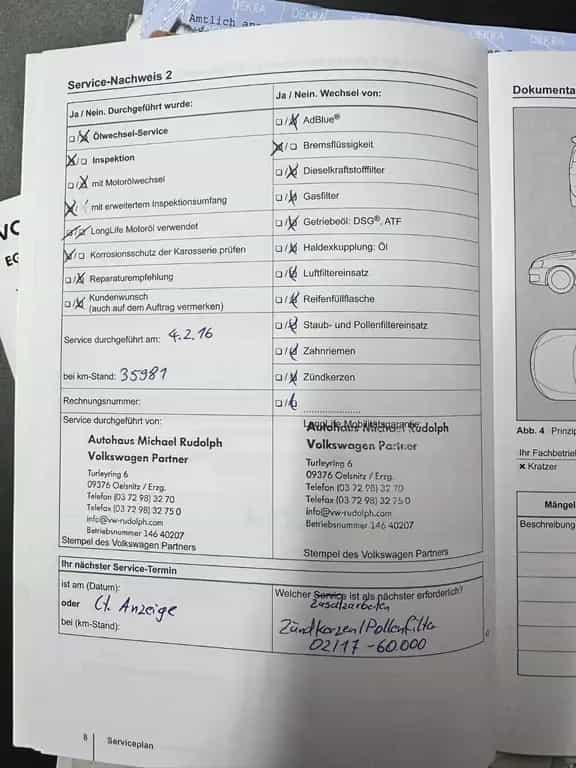 DEKRA
DEKRA
Amtlich
DEKRA
DEKRA
Service-Nachweis 2
Ja / Nein. Durchgeführt wurde:
Ölwechsel-Service
Inspektion
mit Motorölwechsel
mit erweitertem Inspektionsumfang
LongLife Motoröl verwendet
Korrosionsschutz der Karosserie prüfen
Reparaturempfehlung
Kundenwunsch
(auch auf dem Auftrag vermerken)
Service durchgeführt am: 4.2.16
bei km-Stand: 35981
Rechnungsnummer:
Service durchgeführt von:
Autohaus Michael Rudolph
Volkswagen Partner
Turleyring 6
09376 Oelsnitz / Erzg.
Telefon (03 72 98) 32 70
Telefax (03 72 98) 32 75 0
info@vw-rudolph.com
Betriebsnummer 146 40207
Stempel des Volkswagen Partners
Ja / Nein. Wechsel von:
AdBlue®
Bremsflüssigkeit
Dieselkraftstofffilter
Gasfilter
Getriebeöl: DSG®, ATF
Haldexkupplung: Öl
Luftfiltereinsatz
Reifenfüllflasche
Staub- und Pollenfiltereinsatz
Zahnriemen
Zündkerzen
LongLife Mobilitätsgarantie
Autohaus Michael Rudolph
Volkswagen Partner
Turleyring 6
09376 Oelsnitz / Erzg.
Telefon (03 72 98) 32 70
Telefax (03 72 98) 32 75 0
info@vw-rudolph.com
Betriebsnummer 146 40207
Stempel des Volkswagen Partners
Ihr nächster Service-Termin
ist am (Datum):
oder lt. Anzeige
bei (km-Stand):
Welcher Service ist als nächster erforderlich?
Zusatzarbeiten
Zündkerzen/Pollenfilter
02/17 - 60.000
8
Serviceplan
Dokumenta
Abb. 4 Prinzip
Ihr Fachbetrieb
× Kratzer
Mängel
Beschreibung
EG